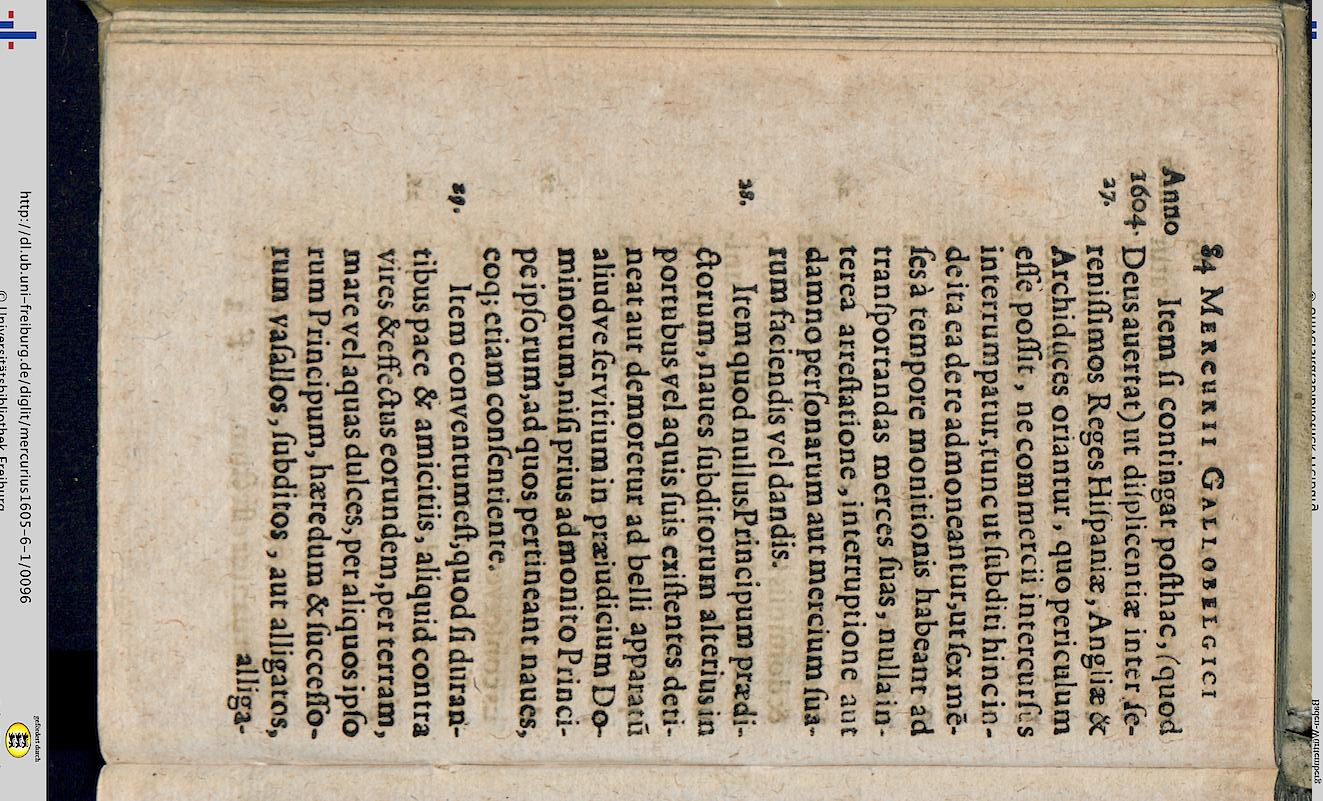 84 MERCURII GALLOBELGICI
Anno Item ſi contingat poſthac, (quod
1604. Deus auertat) ut diſplicentiæ inter ſe-
27. reniſſimos Reges Hiſpaniæ, Angliæ &
Archiduces oriantur, quo periculum
eſſe poſſit, ne commercii intercurſus
interrumpatur, tunc ut ſubditi hinc in-
de ita ea de re admoneantur, ut ſex mē-
ſes à tempore monitionis habeant ad
tranſportandas merces ſuas, nulla in-
terea arreſtatione, interruptione aut
damno perſonarum aut mercium ſua-
rum faciendis vel dandis.
28. Item quod nullus Principum prædi-
ctorum, naues ſubditorum alterius in
portubus vel aquis ſuis exiſtentes deti-
neat aut demoretur ad belli apparatū
aliudve ſervitium in præiudicium Do-
minorum, niſi prius admonito Princi-
pe ipſorum, ad quos pertineant naues,
eoq; etiam conſentiente.
29. Item conventum eſt, quod ſi duran-
tibus pace & amicitiis, aliquid contra
vires & effectus eorundem, per terram,
mare vel aquas dulces, per aliquos ipſo
rum Principum, hæredum & ſucceſſo-
rum vaſallos, ſubditos, aut alligatos,
alliga-
http://dl.ub.uni-freiburg.de/diglit/mercurius1605-6-1/0096
© Universitätsbibliothek Freiburg
gefördert durch